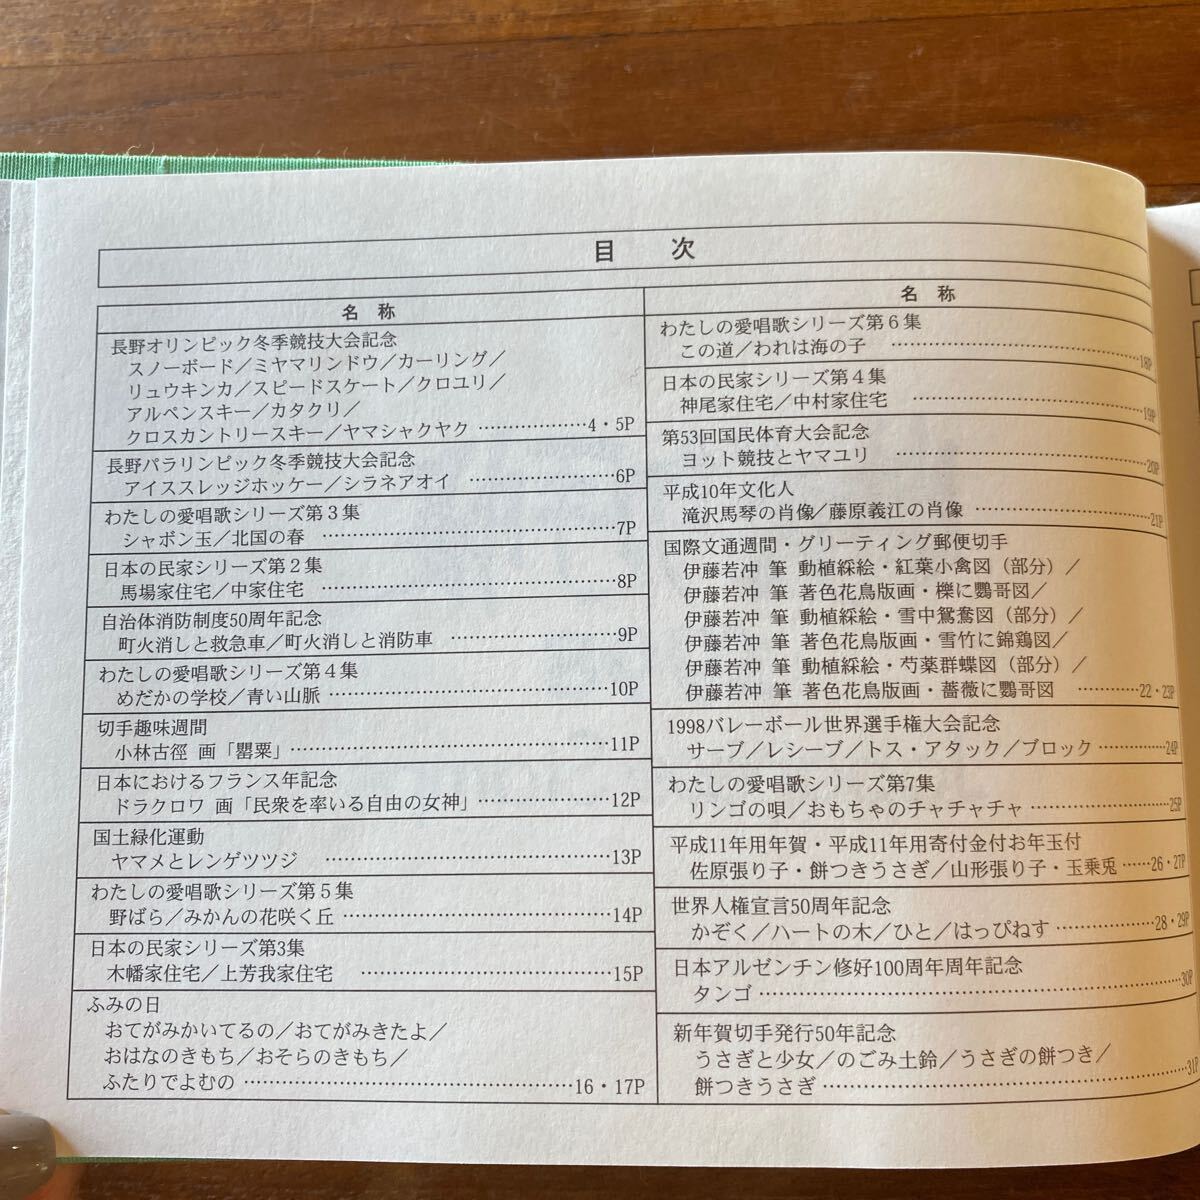 目 次
名 称
長野オリンピック冬季競技大会記念
スノーボード／ミヤマリンドウ／カーリング／
リュウキンカ／スピードスケート／クロユリ／
アルペンスキー／カタクリ／
クロスカントリースキー／ヤマシャクヤク ………………4・5P
長野パラリンピック冬季競技大会記念
アイススレッジホッケー／シラネアオイ ………………………6P
わたしの愛唱歌シリーズ第３集
シャボン玉／北国の春 ………………………………………7P
日本の民家シリーズ第２集
馬場家住宅／中家住宅 ………………………………………8P
自治体消防制度50周年記念
町火消しと救急車／町火消しと消防車 ……………………9P
わたしの愛唱歌シリーズ第４集
めだかの学校／青い山脈 ……………………………………10P
切手趣味週間
小林古徑 画「罌粟」…………………………………………11P
日本におけるフランス年記念
ドラクロワ 画「民衆を率いる自由の女神」………………12P
国土緑化運動
ヤマメとレンゲツツジ ………………………………………13P
わたしの愛唱歌シリーズ第５集
野ばら／みかんの花咲く丘 …………………………………14P
日本の民家シリーズ第3集
木幡家住宅／上芳我家住宅 …………………………………15P
ふみの日
おてがみかいてるの／おてがみきたよ／
おはなのきもち／おそらのきもち／
ふたりでよむの ………………………………………………16・17P
名 称
わたしの愛唱歌シリーズ第６集
この道／われは海の子 ………………………………………18P
日本の民家シリーズ第４集
神尾家住宅／中村家住宅 ……………………………………19P
第53回国民体育大会記念
ヨット競技とヤマユリ ………………………………………20P
平成10年文化人
滝沢馬琴の肖像／藤原義江の肖像 …………………………21P
国際文通週間・グリーティング郵便切手
伊藤若冲 筆 動植綵絵・紅葉小禽図（部分）／
伊藤若冲 筆 著色花鳥版画・櫟に鸚哥図／
伊藤若冲 筆 動植綵絵・雪中鴛鴦図（部分）／
伊藤若冲 筆 著色花鳥版画・雪竹に錦鶏図／
伊藤若冲 筆 動植綵絵・芍薬群蝶図（部分）／
伊藤若冲 筆 著色花鳥版画・薔薇に鸚哥図 …………22・23P
1998バレーボール世界選手権大会記念
サーブ／レシーブ／トス・アタック／ブロック …………24P
わたしの愛唱歌シリーズ第7集
リンゴの唄／おもちゃのチャチャチャ ……………………25P
平成11年用年賀・平成11年用寄付金付お年玉付
佐原張り子・餅つきうさぎ／山形張り子・玉乗兎 ……26・27P
世界人権宣言50周年記念
かぞく／ハートの木／ひと／はっぴねす ………………28・29P
日本アルゼンチン修好100周年周年記念
タンゴ …………………………………………………………30P
新年賀切手発行50年記念
うさぎと少女／のごみ土鈴／うさぎの餅つき／
餅つきうさぎ …………………………………………………31P